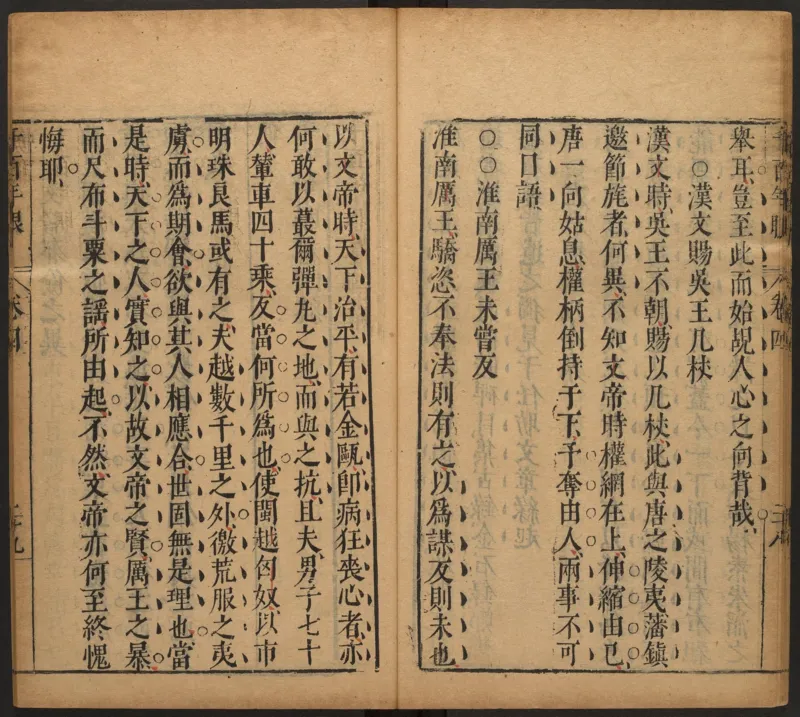 千百年眼 卷四
舉耳豈至此而始覘人心之向背哉
○漢文賜吳王几杖
漢文時吳王不朝賜以几杖此與唐之陵夷藩鎭
邀節旄者何異不知文帝時權綱在上伸縮由已
唐一向姑息權柄倒持于下予奪由人兩事不可
同日語
○○淮南厲王未嘗反
淮南厲王驕恣不奉法則有之以爲謀反則未也
以文帝時天下治平有若金甌卽病狂喪心者亦
何敢以蕞爾彈丸之地而與之抗且夫男子七十
人輦車四十乘反當何所爲也使閩越匈奴以市
明珠良馬或有之夫越數千里之外徼荒服之夷
虜而爲期會欲與其人相應合世固無是理也當
是時天下之人實知之以故文帝之賢厲王之暴
而尺布斗粟之謡所由起不然文帝亦何至終愧
悔耶
千百年眼 卷四